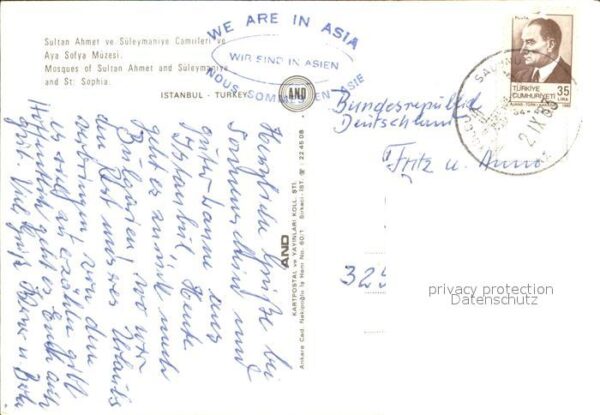 Sultan Ahmet ve Süleymaniye Camiileri ve
Aya Sofya Müzesi.
Mosques of Sultan Ahmet and Süleymaniye
and St: Sophia.
ISTANBUL - TURKEY
WE ARE IN ASIA
WIR SIND IN ASIEN
NOUS SOMMES EN ASIE
AND
TÜRKİYE
CUMHURİYETİ
35
LIRA
Bundesrepublik
Deutschland
Fritz u. Anne
325
Herzliche Grüße bei
Sonnenschein und
guter Laune aus
Istanbul. Heute
geht es zurück nach
Bulgarien, wo wir
den Rest unseres Urlaubs
verbringen, von dem
es viel zu erzählen gibt.
Hoffentlich geht es Euch auch
gut. Viele Grüße
AND
KARTPOSTAL ve YAYINLARI KOLL. STI.
Ankara Cad. Nakipoğlu İş Hanı No. 60/1 Sirkeci-IST. ☎: 22 45 08
privacy protection
Datenschutz